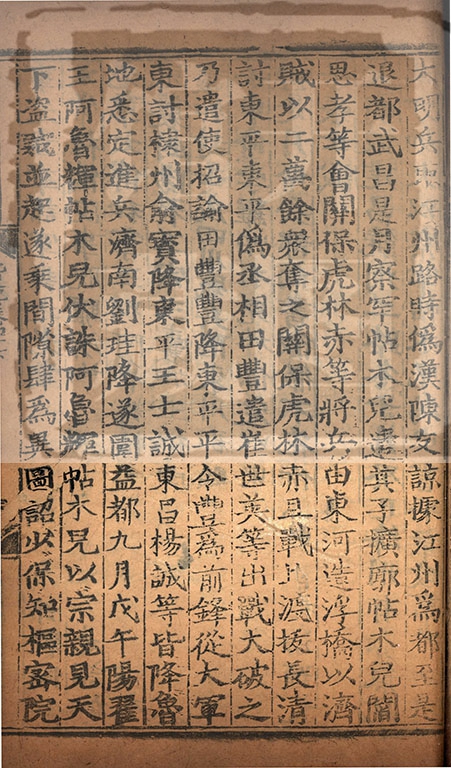 大明兵取江州路時僞漢陳友諒據江州爲都至是
退都武昌是月察罕帖木兒遣其子擴廓帖木兒閻
思孝等會關保虎林赤等將兵由東河造浮橋以濟
賊以二萬餘衆奪之關保虎林赤且戰且渡拔長清
討東平東平僞丞相田豐遣崔世英等出戰大破之
乃遣使招諭田豐豐降東平平令豐爲前鋒從大軍
東討棣州俞寳降東平王士誠東昌楊誠等皆降魯
地悉定進兵濟南劉珪降遂圍益都九月戊午陽翟
王阿魯輝帖木兒伏誅阿魯輝帖木兒以宗親見天
下盗賊並起遂乗間隙肆爲異圖詔少保知樞密院